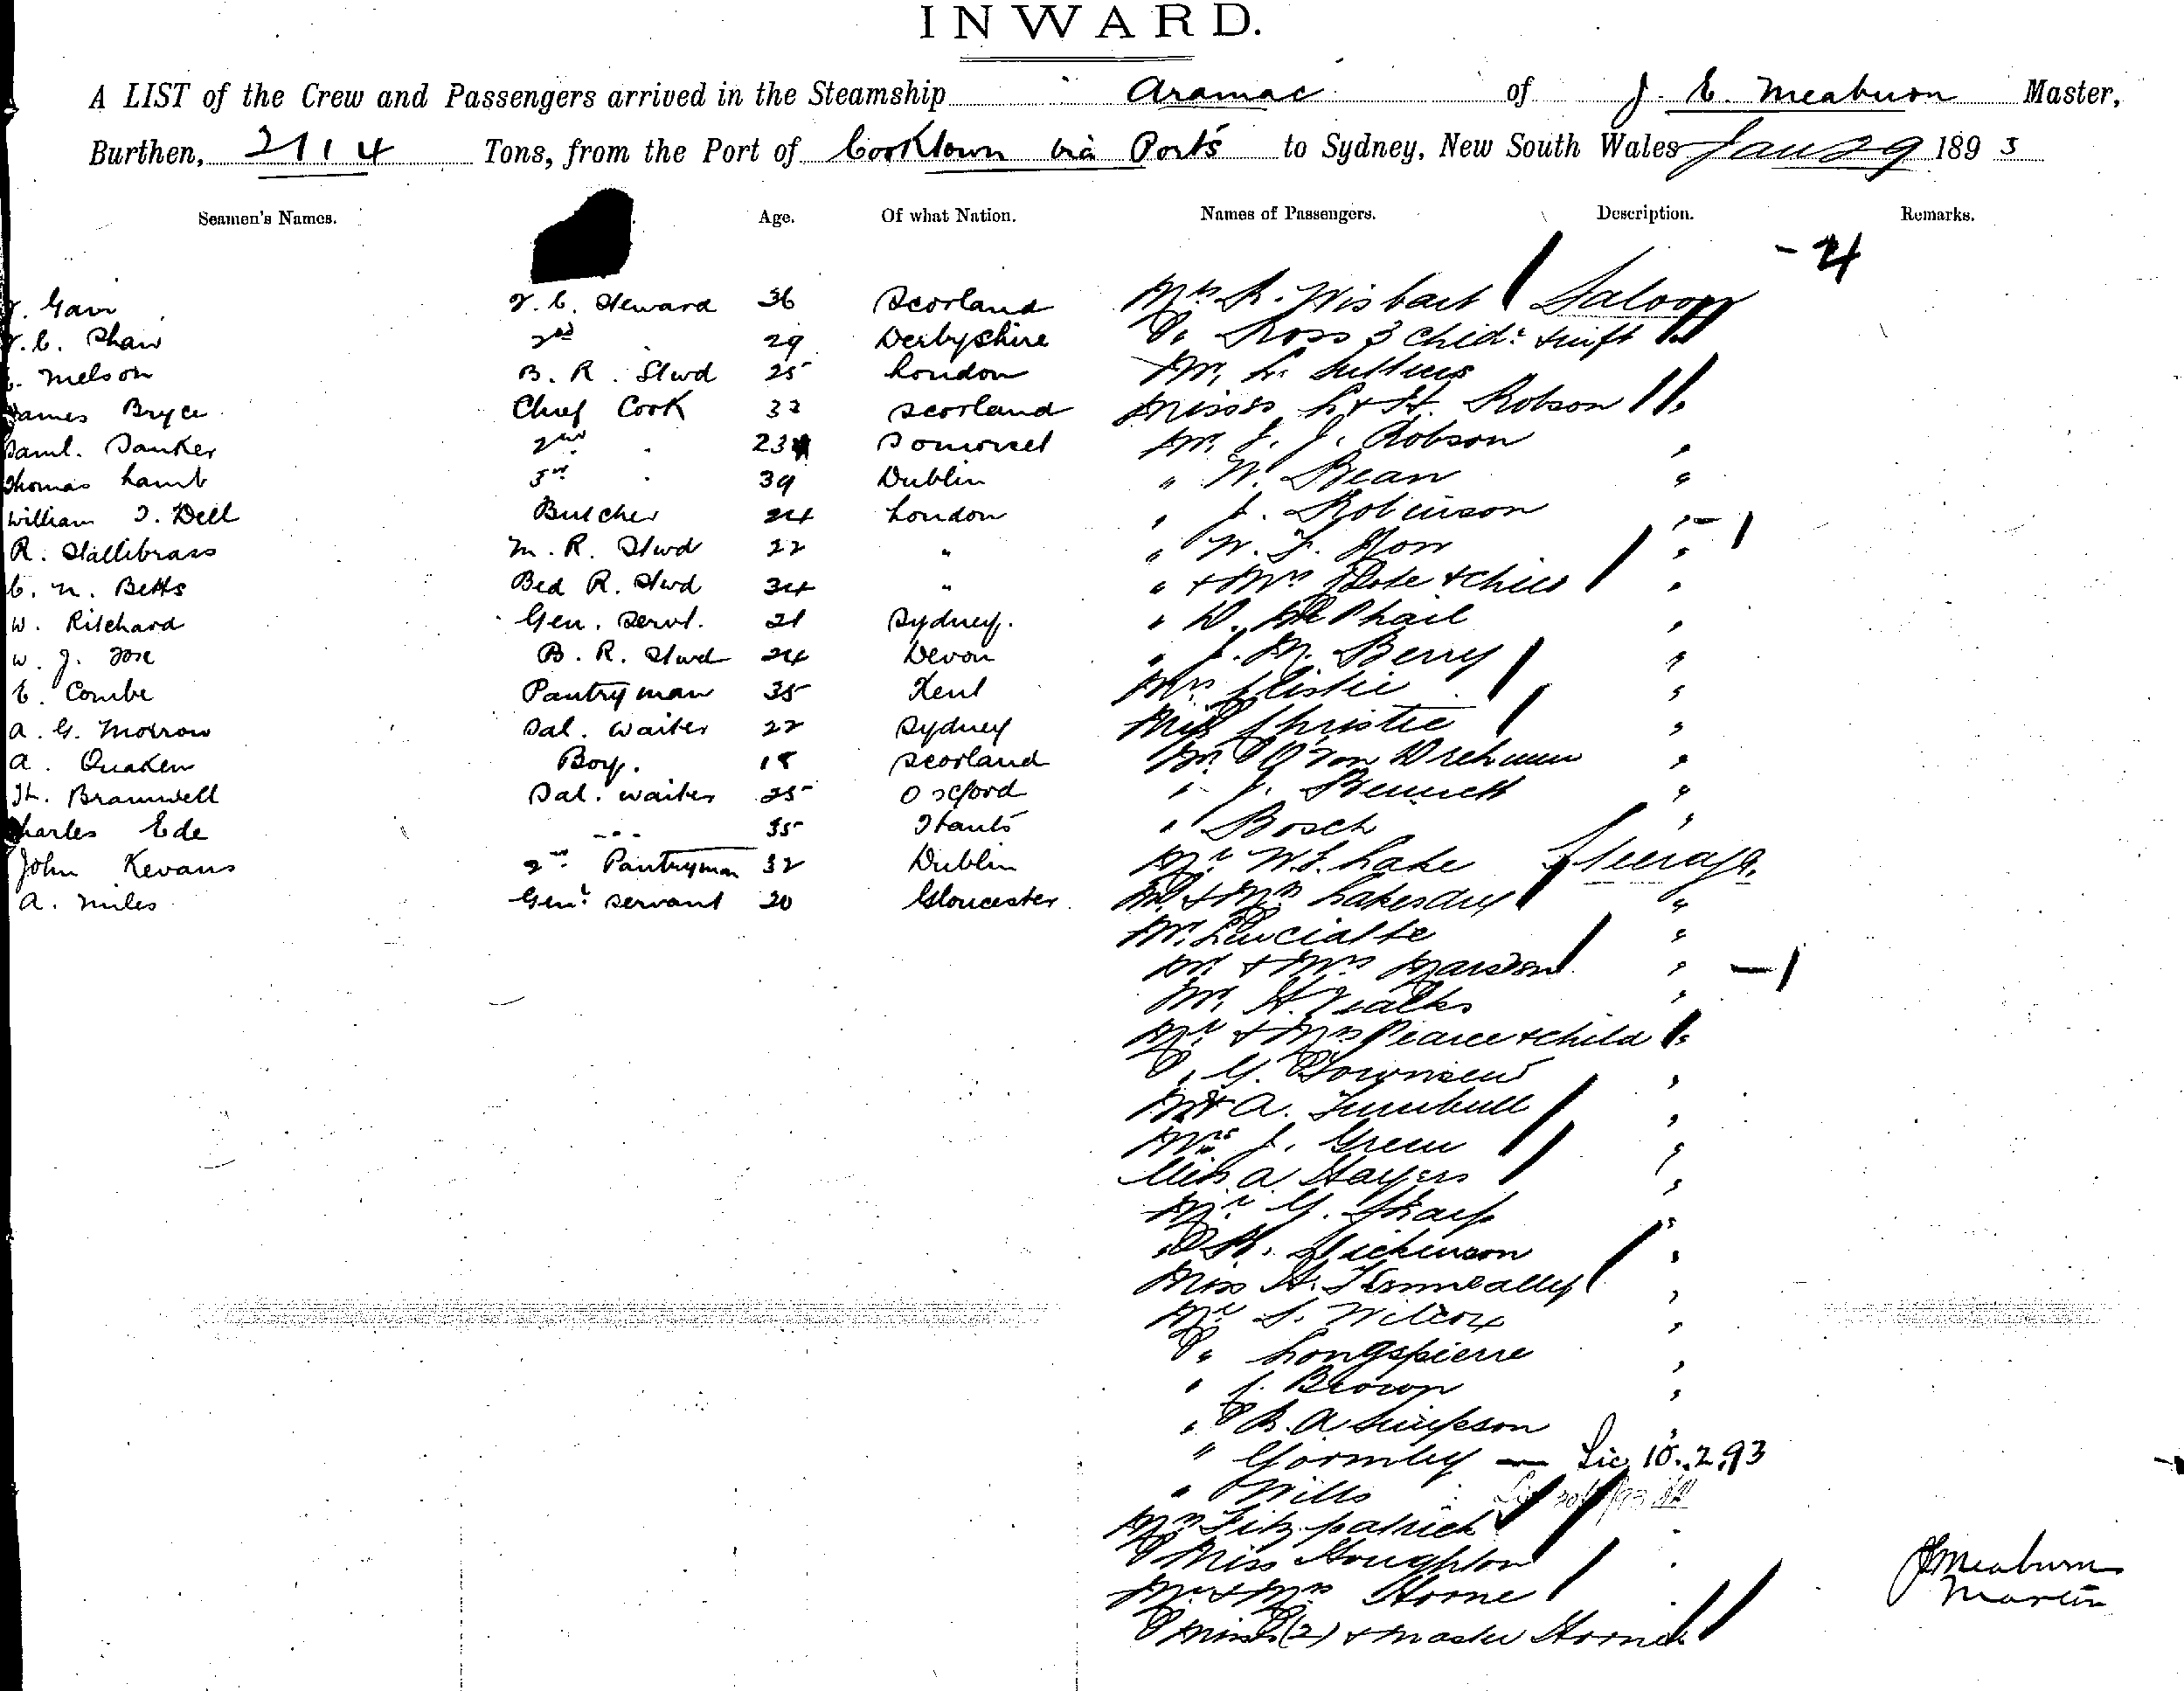 INWARD.
A LIST of the Crew and Passengers arrived in the Steamship Aramac of J. E. Meaburn Master,
Burthen, 2114 Tons, from the Port of Cooktown via Ports to Sydney, New South Wales Jan 29 1893
Seamen's Names. Age. Of what Nation. Names of Passengers. Description. Remarks.
- 4
Gavin F. C. Steward 36 Scotland Mrs R. Wishart Saloon
Shaw 2nd 29 Derbyshire " Ross 3 Child: & Inft "
Nelson B. R. Stwd 25 London Mr
James Bryce Chief Cook 32 Scotland Misses L & H. Robson "
Saml. Danker 2nd . 23 Somerset Mr. J. J. Robson "
Thomas Lamb 3rd . 39 Dublin " W. Bean "
William J. Dell Butcher 24 London " J. Robinson " - 1
R. Stallibrass M. R. Stwd 22 " " W. "
C. N. Betts Bed R. Stwd 34 " " & Mrs & Child "
W. Ritchard Gen. Servt. 21 Sydney. " D. McPhail "
W. J. B. R. Stwd 24 Devon " J. M. Berry "
E. Combe Pantryman 35 Kent Mrs "
A. G. Morrow Sal. Waiter 22 Sydney Miss Christie "
A. Quaken Boy. 18 Scotland Mr. Von "
H. Bramwell Sal. Waiter 25 Oxford " J. Bennett "
Charles Ede " " 35 Hants " Bosch "
John Kevans 2nd Pantryman 32 Dublin Mr W. J. Lake Steerage.
A. Miles Genl Servant 20 Gloucester. Mr. & Mrs "
Mr. "
Mr & Mrs Marsden " - 1
Mr. H. "
Mr & Mrs Pearce & Child "
" G. Townsend "
Mr A. Turnbull "
Mrs J. Green "
Miss A. Hayes "
Mr G. Sharp "
" H. Dickenson "
Miss H. Kenneally "
Mr S. Wilcox "
" Longspierre "
" J. Brown "
" B. A. Simpson "
" Gormley — Lic 10.2.93
" Wills
Mrs Fitzpatrick
Miss Houghton
Mr & Mrs Horne
Misses (2) & Master Horne
J Meaburn
Master